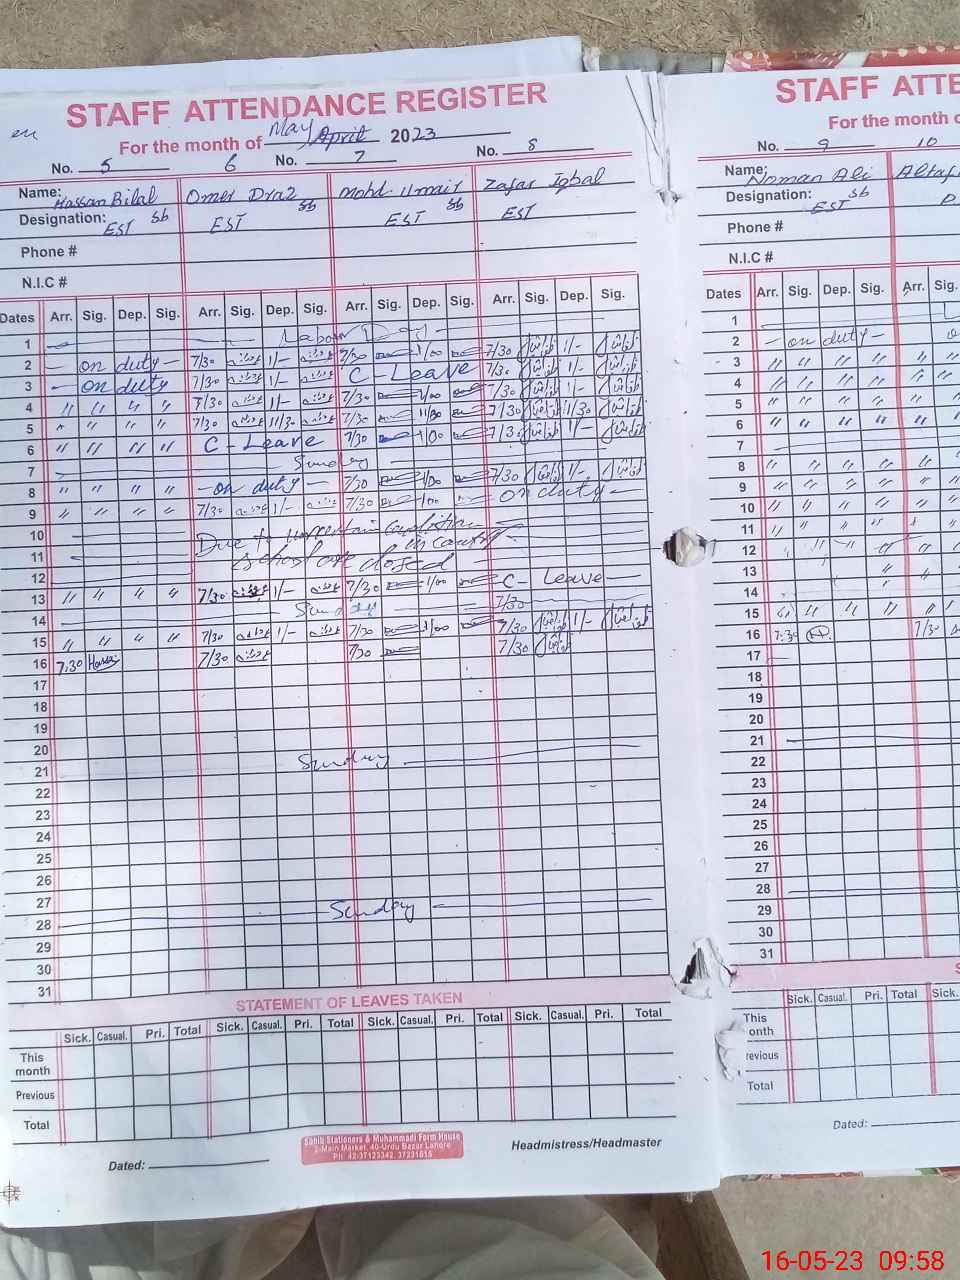 STAFF ATTENDANCE REGISTER
For the month of May April 2023
No. 5 6 No. 7 No. 8
Name: Hassan Bilal Omer Draz Mohd Umair Zafar Iqbal
Designation: EST Sb EST Sb EST Sb EST
Phone #
N.I.C #
Dates Arr. Sig. Dep. Sig. Arr. Sig. Dep. Sig. Arr. Sig. Dep. Sig. Arr. Sig. Dep. Sig.
1 Labour Day
2 on duty 7/30 1/- 7/30 1/00 7/30 1/-
3 on duty 7/30 1/- C-Leave 7/30 1/-
4 〃 〃 〃 〃 7/30 1/- 7/30 1/00 7/30 1/-
5 〃 〃 〃 〃 7/30 11/30 7/30 11/30 7/30 11/30
6 〃 〃 〃 〃 C-Leave 7/30 1/00 7/30 1/-
7 Sunday
8 〃 〃 〃 〃 on duty 7/30 1/00 7/30 1/-
9 〃 〃 〃 〃 7/30 1/- 7/30 1/00 on duty
10 Due to uncertain condition
11 in country
12 school are closed
13 〃 〃 〃 〃 7/30 1/- 7/30 1/00 C-Leave
14 Sunday 7/30
15 〃 〃 〃 〃 7/30 1/- 7/30 1/00 7/30 1/-
16 7:30 7/30 7/30 7/30
17
18
19
20
21 Sunday
22
23
24
25
26
27
28 Sunday
29
30
31
STATEMENT OF LEAVES TAKEN
Sick. Casual. Pri. Total Sick. Casual. Pri. Total Sick. Casual. Pri. Total Sick. Casual. Pri. Total
This
month
Previous
Total
Sahib Stationers & Muhammadi Form House
2-Main Market, 40-Urdu Bazar Lahore
Ph: 42-37123342, 37231615
Headmistress/Headmaster
Dated:
STAFF ATTE
For the month o
No. 9 10
Name: Noman Ali Altaf
Designation: EST Sb
Phone #
N.I.C #
Dates Arr. Sig. Dep. Sig. Arr. Sig.
1
2 on duty
3 〃 〃 〃 〃 〃 〃
4 〃 〃 〃 〃 〃 〃
5 〃 〃 〃 〃 〃 〃
6 〃 〃 〃 〃 〃 〃
7
8 〃 〃 〃 〃 〃 〃
9 〃 〃 〃 〃 〃 〃
10 〃 〃 〃 〃 〃 〃
11 〃 〃 〃 〃 〃 〃
12 〃 〃 〃 〃 〃
13 〃 〃
14
15 〃 〃 〃 〃 〃 〃
16 7:30 7/30
17
18
19
20
21
22
23
24
25
26
27
28
29
30
31
S
Sick. Casual. Pri. Total Sick.
This
month
revious
Total
Dated:
16-05-23 09:58